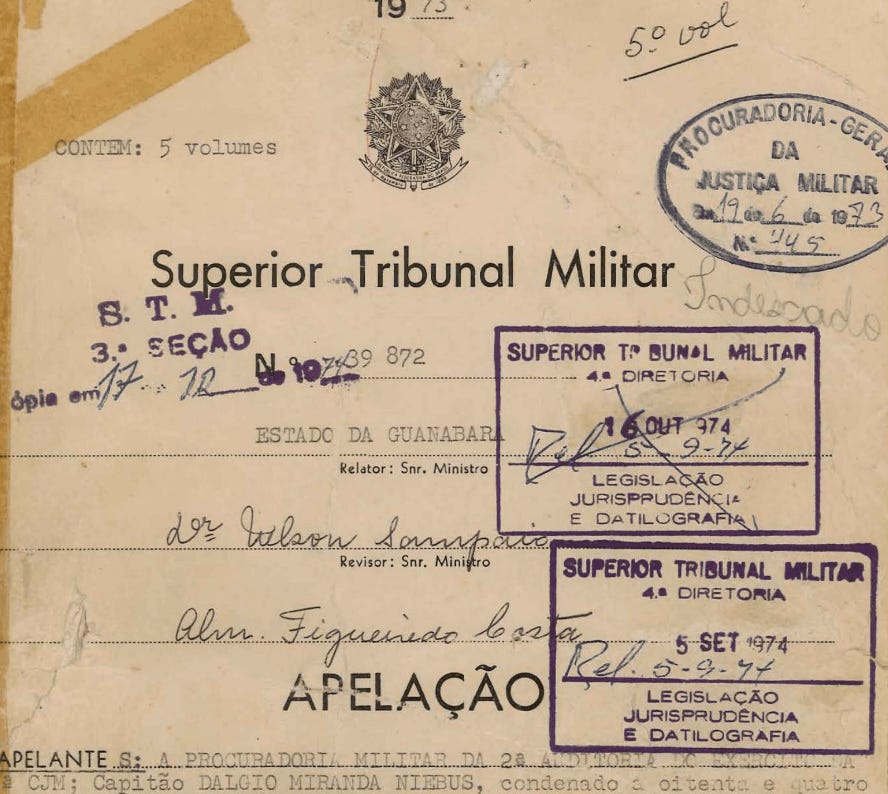 1973
5º vol
CONTEM: 5 volumes
PROCURADORIA-GERAL
DA
JUSTIÇA MILITAR
Em 19 de 6 de 1973
N.º 445
Superior Tribunal Militar
Indexado
S. T. M.
3.ª SEÇÃO
N.º 39 872
ópia em 17 12 de 1974
SUPERIOR TRIBUNAL MILITAR
4.ª DIRETORIA
16 OUT 974
Rel 5-9-74
LEGISLAÇÃO
JURISPRUDÊNCIA
E DATILOGRAFIA
ESTADO DA GUANABARA
Relator: Snr. Ministro
Dr. Nelson Sampaio
Revisor: Snr. Ministro
Alm. Figueiredo Costa
SUPERIOR TRIBUNAL MILITAR
4.ª DIRETORIA
5 SET 1974
Rel. 5-9-74
LEGISLAÇÃO
JURISPRUDÊNCIA
E DATILOGRAFIA
APELAÇÃO
APELANTE S: A PROCURADORIA MILITAR DA 2ª AUDITORIA DO EXERCITO DA
ª CJM; Capitão DALGIO MIRANDA NIEBUS, condenado a oitenta e quatro